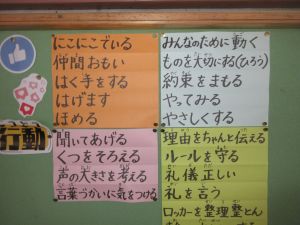 にこにこでいる
仲間おもい
はく手をする
はげます
ほめる
みんなのために動く
ものを大切にする(ひろう)
約束をまもる
やってみる
やさしくする
行動
聞いてあげる
くつをそろえる
声の大きさを考える
言葉づかいに気をつける
理由をちゃんと伝える
ルールを守る
礼儀正しい
礼を言う
ロッカーを整理整とん